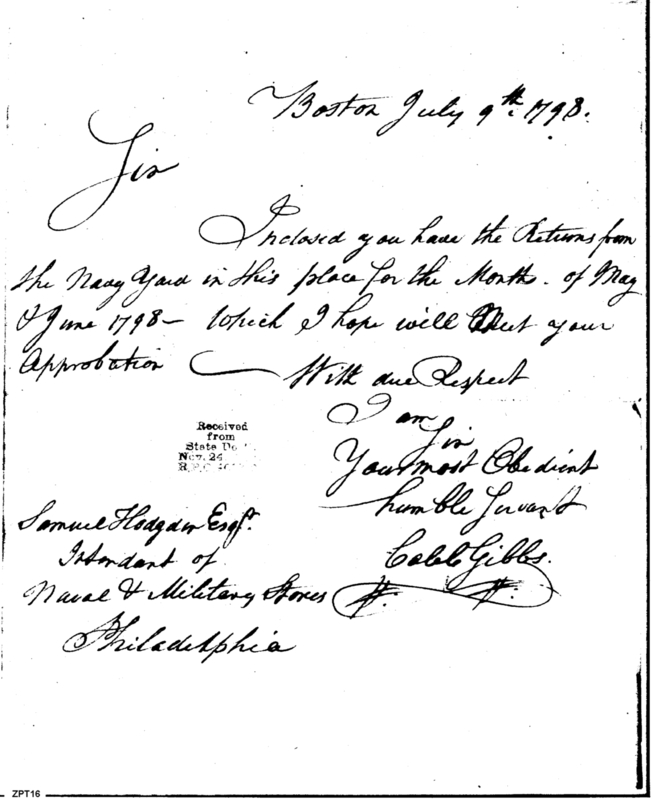 Boston July 9th. 1798.
Sir
Inclosed you have the Returns from
the Navy Yard in this place for the Month. of May
& June 1798 — Which I hope will Meet your
Approbation — With due Respect
I am
Sir
Your most Obedient
humble Servant
Caleb Gibbs.
Received
from
State De
Nov. 24
Samuel Hodgdon Esqr.
Intendant of
Naval & Military Stores
Philadelphia
ZPT16